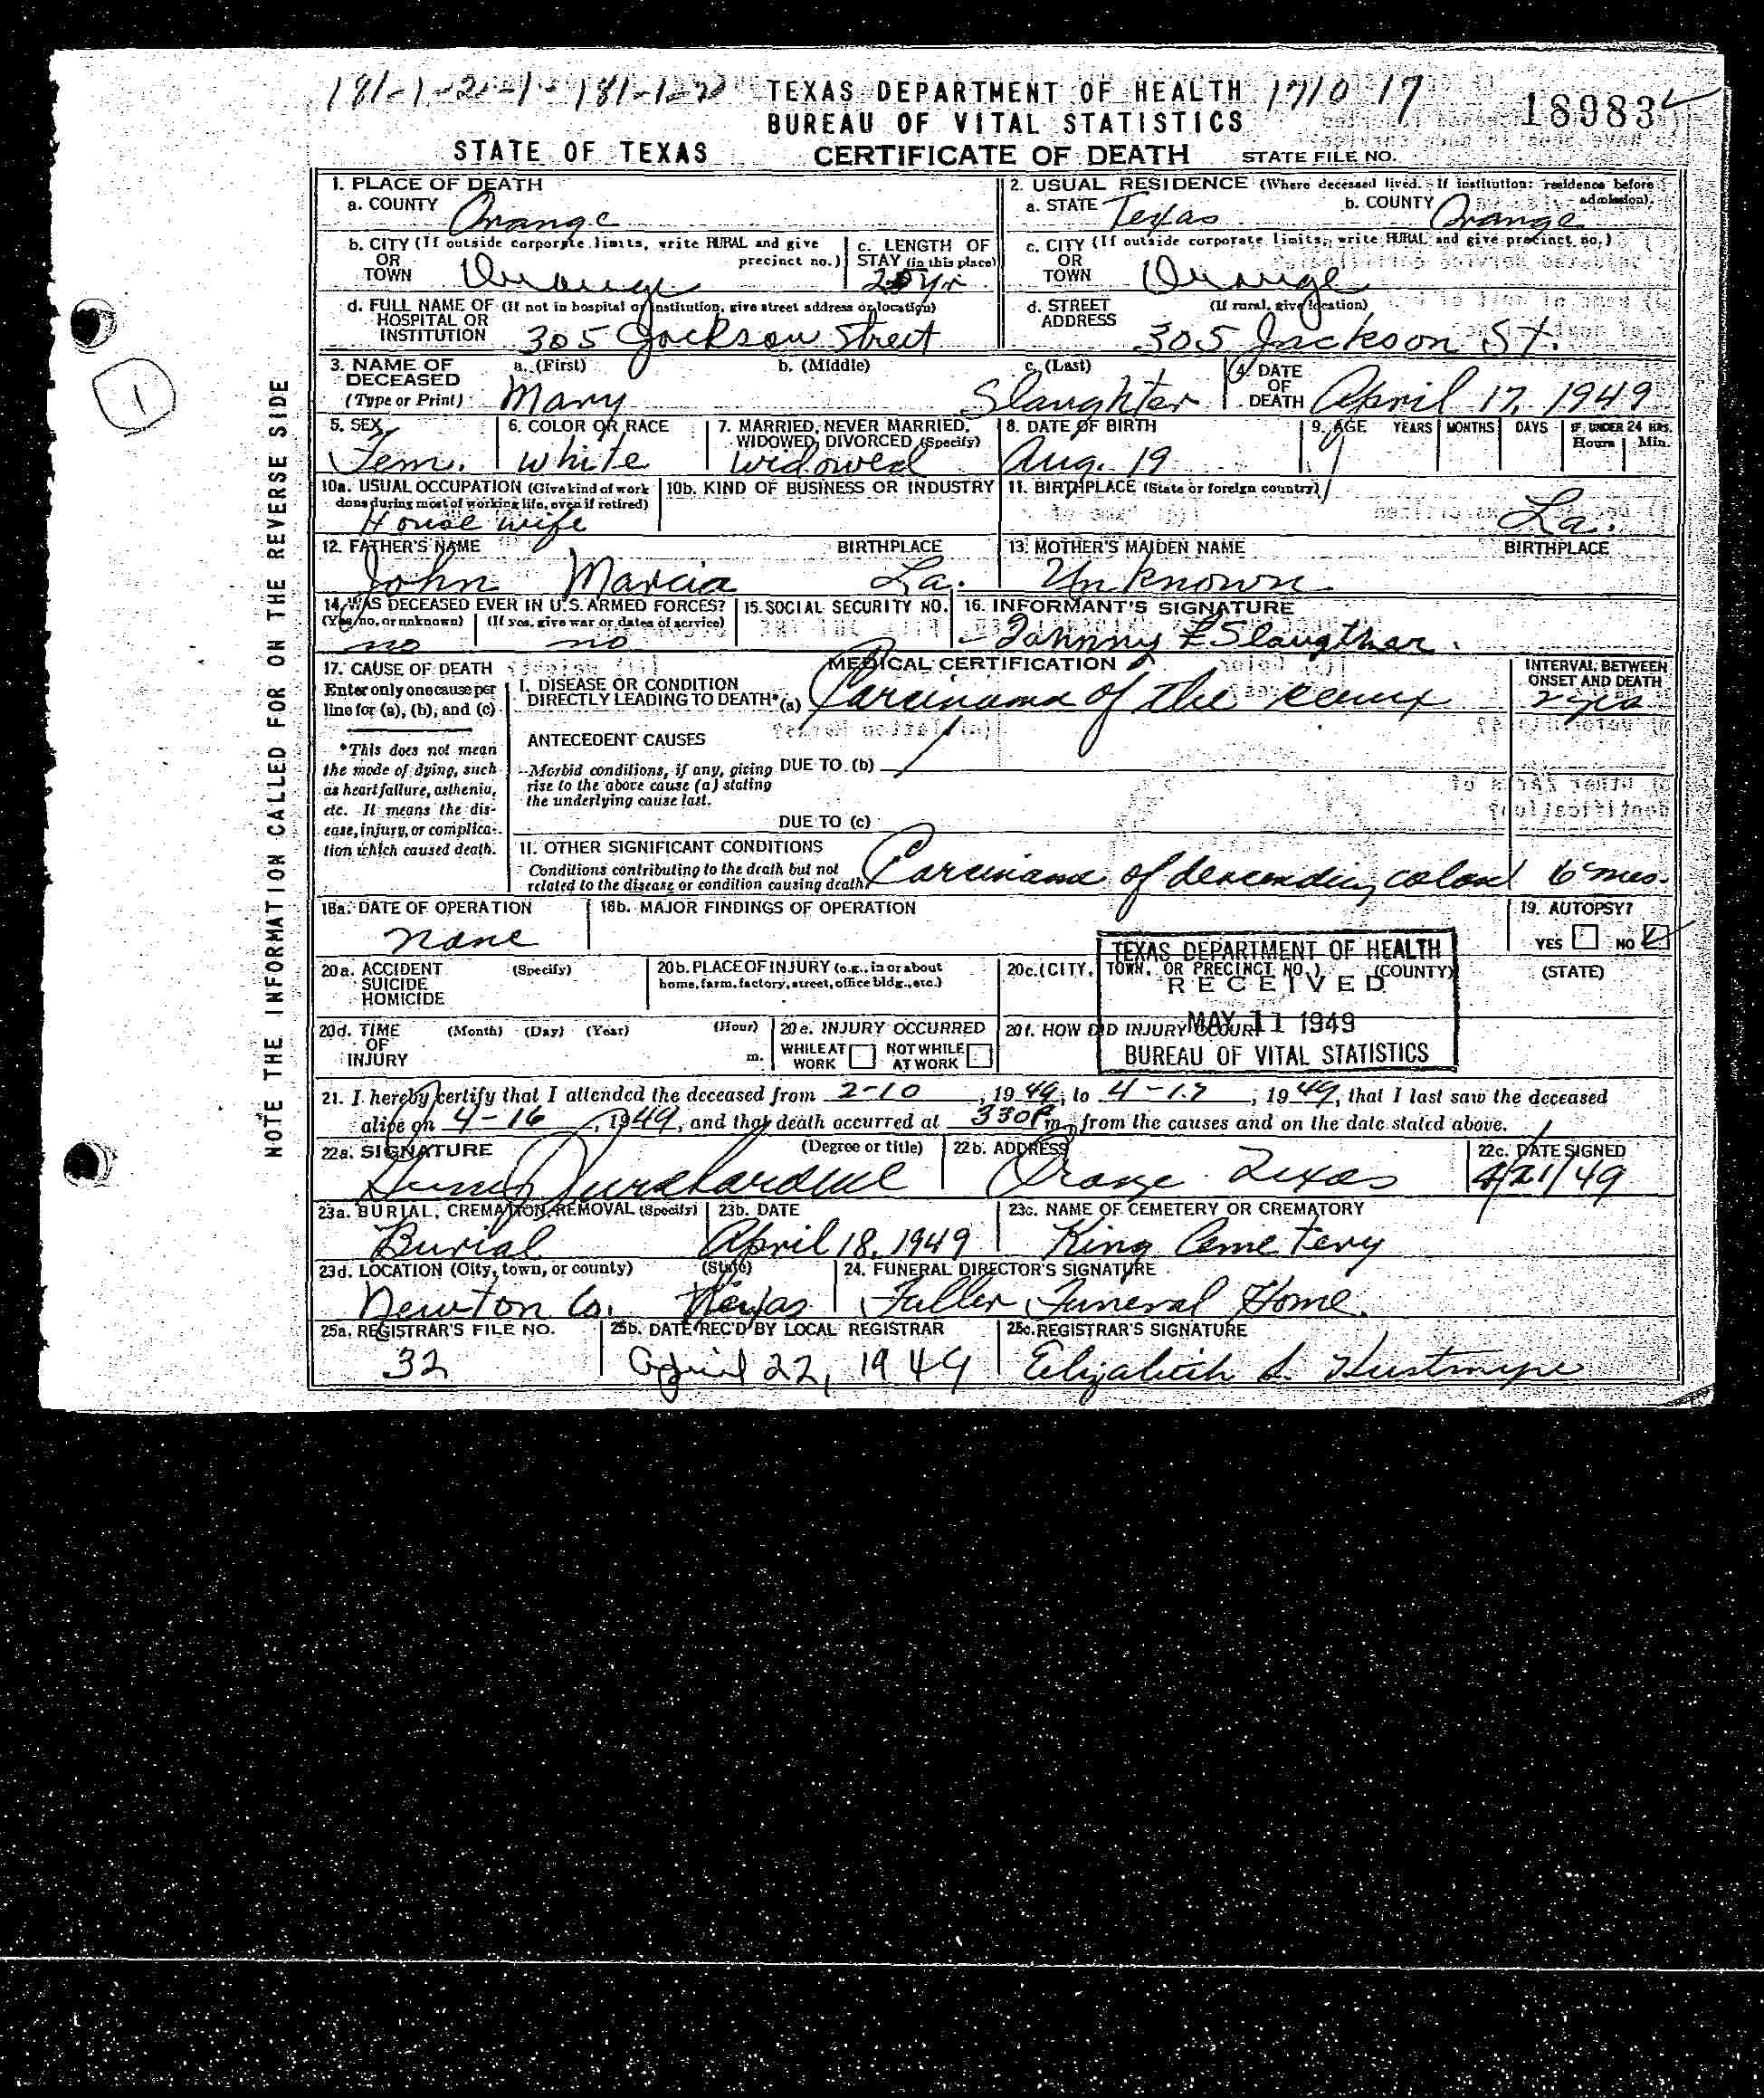 181-1-20-1- 181-1-20 TEXAS DEPARTMENT OF HEALTH 1710 17 18983
BUREAU OF VITAL STATISTICS
STATE OF TEXAS CERTIFICATE OF DEATH STATE FILE NO.
NOTE THE INFORMATION CALLED FOR ON THE REVERSE SIDE
1
1. PLACE OF DEATH
a. COUNTY Orange
2. USUAL RESIDENCE (Where deceased lived. If institution: residence before admission).
a. STATE Texas b. COUNTY Orange
b. CITY (If outside corporate limits, write RURAL and give precinct no.) OR TOWN Orange
c. LENGTH OF STAY (in this place) 20 yr
c. CITY (If outside corporate limits, write RURAL and give precinct no.) OR TOWN Orange
d. FULL NAME OF (If not in hospital or institution, give street address or location) HOSPITAL OR INSTITUTION 305 Jackson Street
d. STREET ADDRESS (If rural, give location) 305 Jackson St.
3. NAME OF DECEASED (Type or Print) a. (First) Mary b. (Middle) c. (Last) Slaughter
4. DATE OF DEATH April 17, 1949
5. SEX Fem.
6. COLOR OR RACE white
7. MARRIED, NEVER MARRIED, WIDOWED, DIVORCED (Specify) Widowed
8. DATE OF BIRTH Aug. 19
9. AGE YEARS MONTHS DAYS IF UNDER 24 HRS. Hours Min.
10a. USUAL OCCUPATION (Give kind of work done during most of working life, even if retired) House wife
10b. KIND OF BUSINESS OR INDUSTRY
11. BIRTHPLACE (State or foreign country) La.
12. FATHER'S NAME John Marcia BIRTHPLACE La.
13. MOTHER'S MAIDEN NAME Unknown BIRTHPLACE
14. WAS DECEASED EVER IN U.S. ARMED FORCES? (Yes, no, or unknown) no (If yes, give war or dates of service) no
15. SOCIAL SECURITY NO.
16. INFORMANT'S SIGNATURE Johnny F Slaugther.
17. CAUSE OF DEATH
Enter only one cause per line for (a), (b), and (c)
*This does not mean the mode of dying, such as heart failure, asthenia, etc. It means the disease, injury, or complication which caused death.
MEDICAL CERTIFICATION
INTERVAL BETWEEN ONSET AND DEATH
I. DISEASE OR CONDITION DIRECTLY LEADING TO DEATH* (a) Carcinoma of the cervix 2 yrs
ANTECEDENT CAUSES
Morbid conditions, if any, giving rise to the above cause (a) stating the underlying cause last.
DUE TO (b)
DUE TO (c)
II. OTHER SIGNIFICANT CONDITIONS
Conditions contributing to the death but not related to the disease or condition causing death. Carcinoma of descending colon 6 mos.
18a. DATE OF OPERATION none
18b. MAJOR FINDINGS OF OPERATION
19. AUTOPSY? YES NO
20a. ACCIDENT SUICIDE HOMICIDE (Specify)
20b. PLACE OF INJURY (e.g., in or about home, farm, factory, street, office bldg., etc.)
20c. (CITY, TOWN, OR PRECINCT NO.) (COUNTY) (STATE)
TEXAS DEPARTMENT OF HEALTH
RECEIVED
MAY 11 1949
BUREAU OF VITAL STATISTICS
20d. TIME OF INJURY (Month) (Day) (Year) (Hour) m.
20e. INJURY OCCURRED WHILE AT WORK NOT WHILE AT WORK
20f. HOW DID INJURY OCCUR?
21. I hereby certify that I attended the deceased from 2-10, 1949, to 4-17, 1949, that I last saw the deceased
alive on 4-16, 1949, and that death occurred at 330 P m., from the causes and on the date stated above.
22a. SIGNATURE (Degree or title)
22b. ADDRESS Orange Texas
22c. DATE SIGNED 4/21/49
23a. BURIAL, CREMATION, REMOVAL (Specify) Burial
23b. DATE April 18, 1949
23c. NAME OF CEMETERY OR CREMATORY King Cemetery
23d. LOCATION (City, town, or county) (State) Newton Co. Texas
24. FUNERAL DIRECTOR'S SIGNATURE Fuller Funeral Home.
25a. REGISTRAR'S FILE NO. 32
25b. DATE REC'D BY LOCAL REGISTRAR April 22, 1949
25c. REGISTRAR'S SIGNATURE Elizabeth S. Hustmyre